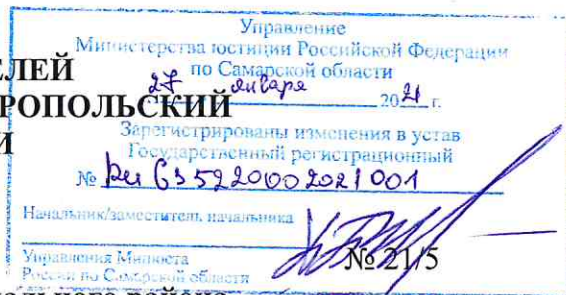 Управление
Министерства юстиции Российской Федерации
по Самарской области
ЕЛЕЙ
27 января 2021 г.
РОПОЛЬСКИЙ
И
Зарегистрированы изменения в устав
Государственный регистрационный
№ Ru 635220002021001
Начальник/заместитель начальника
Управления Минюста
России по Самарской области
№ 21/5
ального района